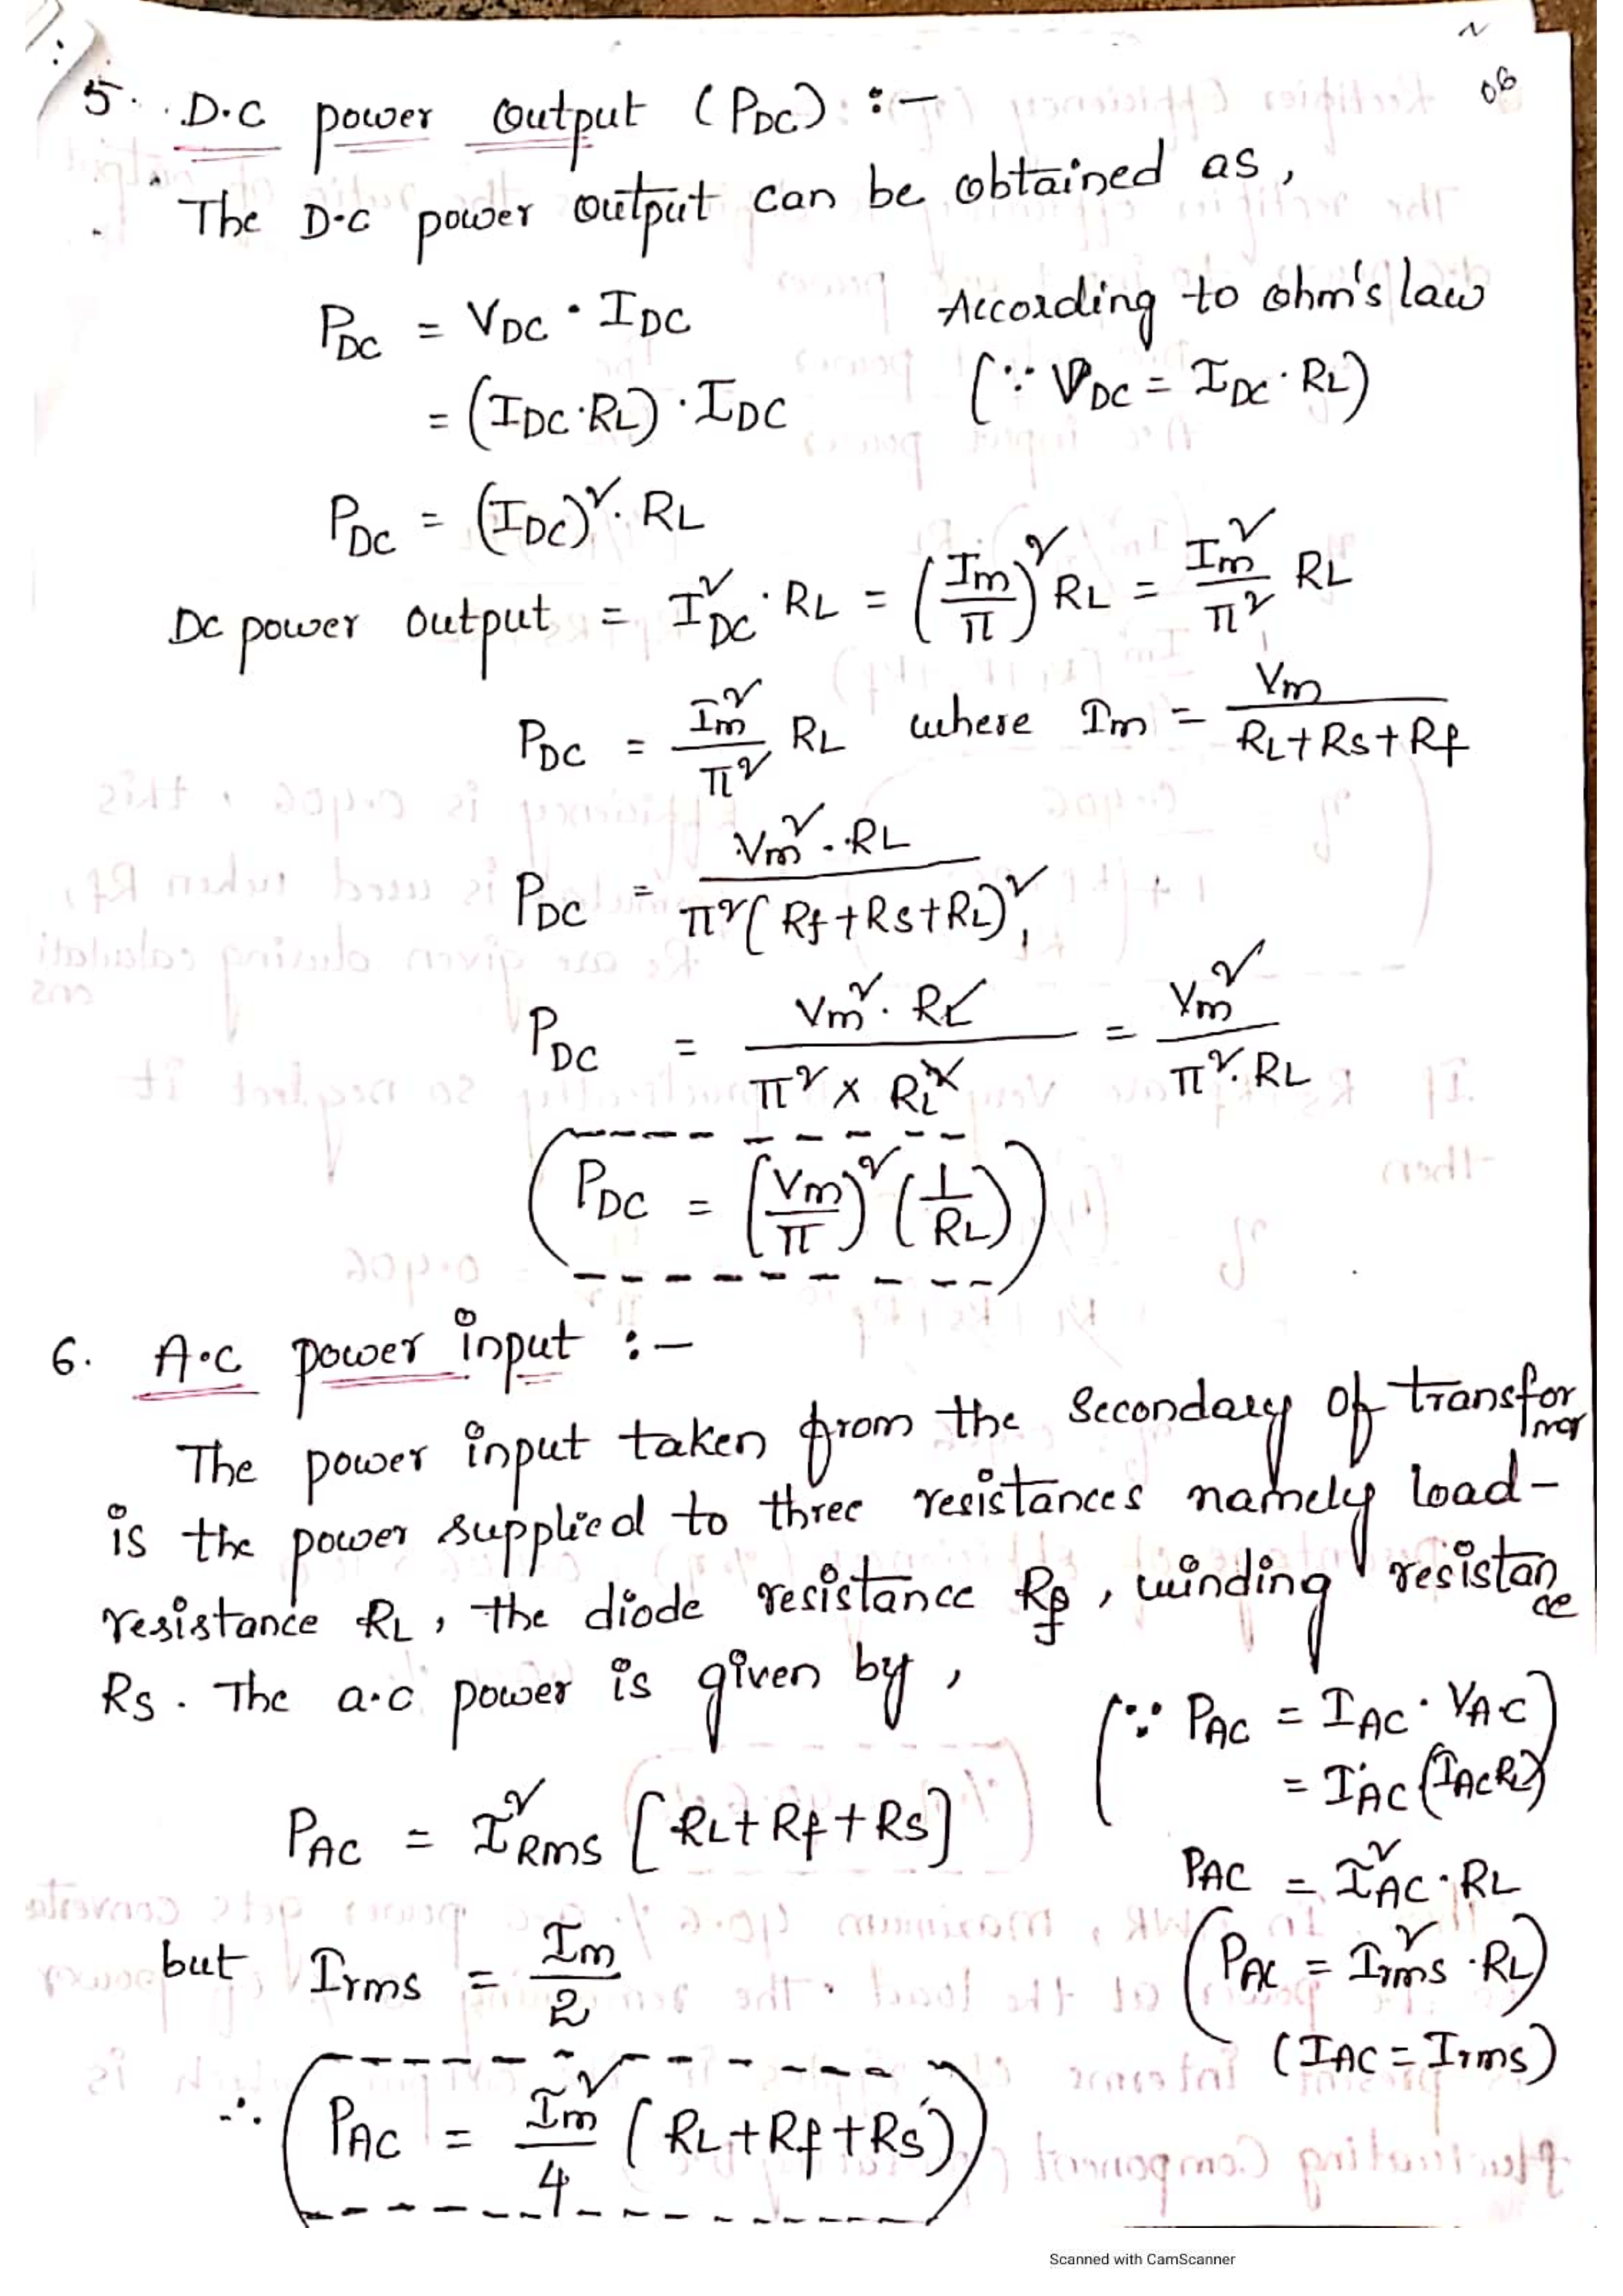 06
5. D.C power output (PDC) :-
The D.C power output can be obtained as,
PDC = VDC · IDC    According to ohm's law
= (IDC·RL) · IDC    (∵ VDC = IDC · RL)
PDC = (IDC)² · RL
Dc power output = I²DC · RL = (Im/π)² RL = Im²/π² RL
PDC = Im²/π² RL where Im = Vm/(RL+Rs+Rf)
PDC = Vm² · RL / π²(Rf+Rs+RL)²
PDC = Vm² · RL / π² × RL² = Vm² / π² · RL
PDC = (Vm/π)² (1/RL)
6. A.C power input :-
The power input taken from the secondary of transformer
is the power supplied to three resistances namely load-
resistance RL, the diode resistance Rf, winding resistance
Rs. The a.c power is given by,
(∵ PAC = IAC · VA.C)
= IAC (IACRL)
PAC = I²RMS [RL+Rf+Rs]
PAC = I²AC · RL
but Irms = Im/2
(PAC = I²rms · RL)
(IAC = Irms)
∴ PAC = Im²/4 (RL+Rf+Rs)
Scanned with CamScanner